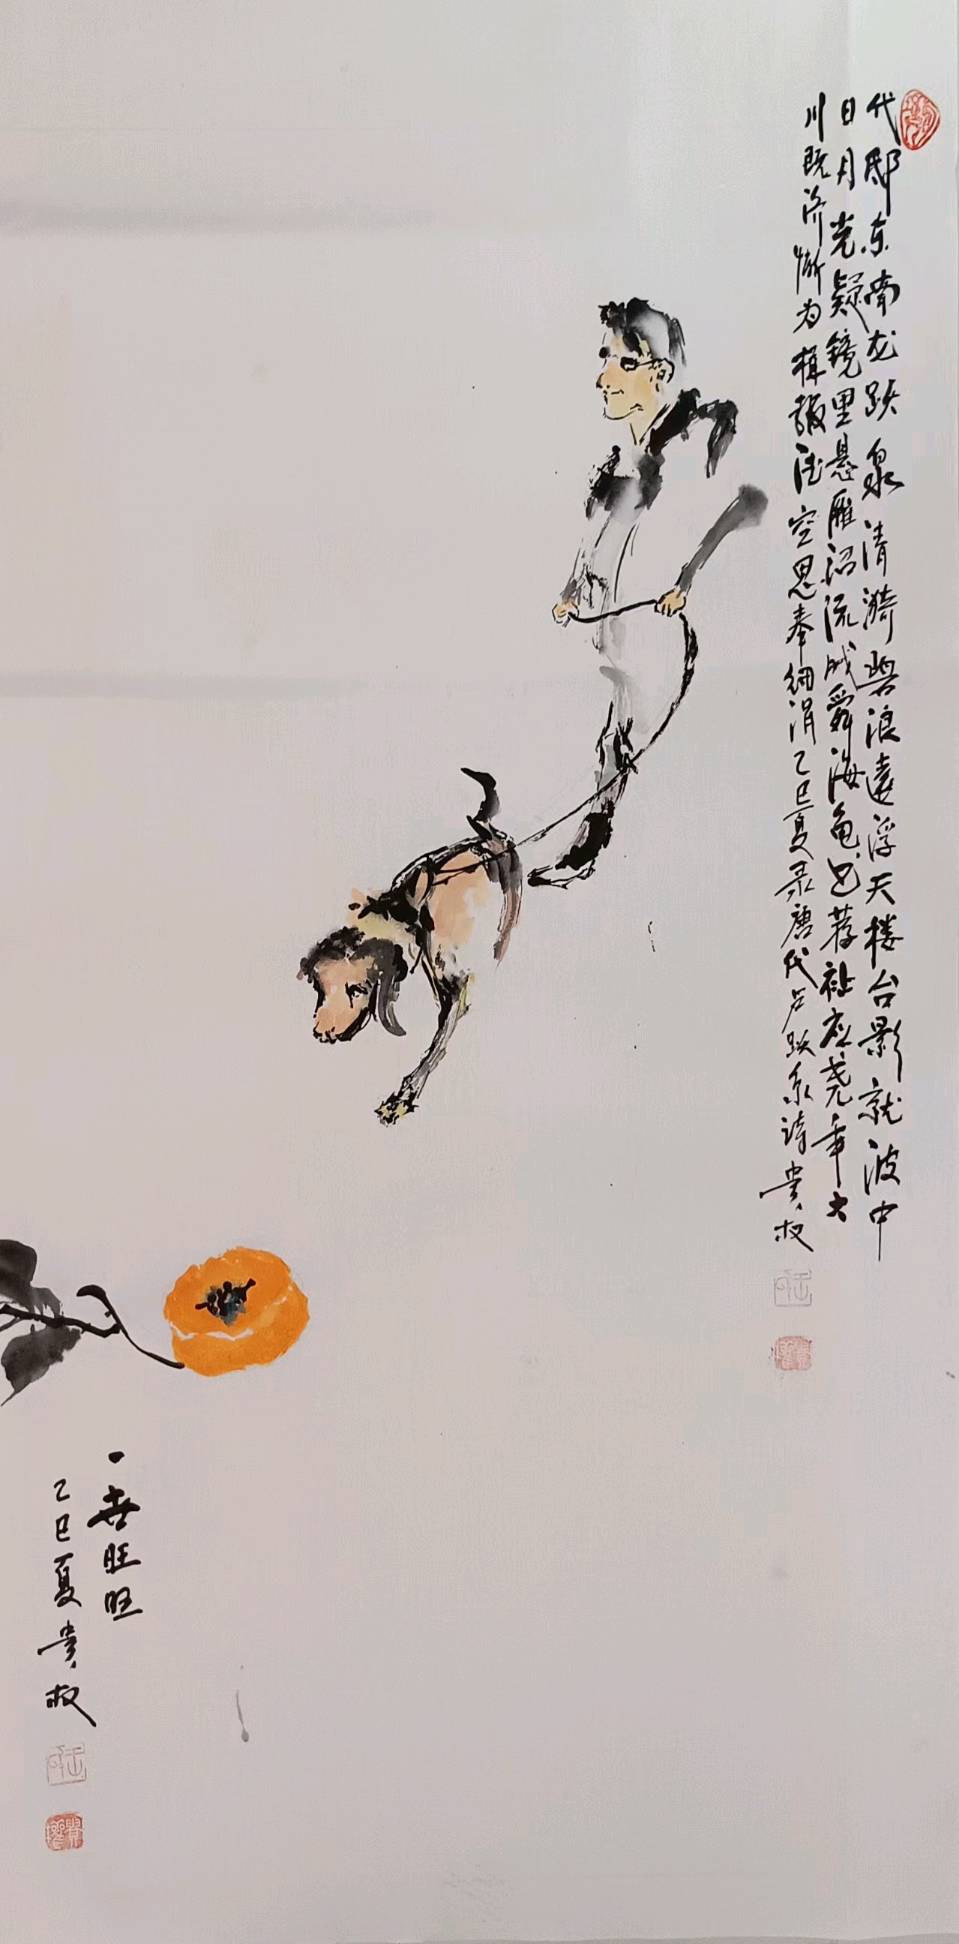 代邸东南龙跃泉清漪碧浪远浮天楼台影就波中
日月光疑镜里悬雁沼流成舜海龟书荐祉应尧年大
川既济惭为楫报德空思奉细涓乙巳夏录唐代卢跃泉诗贵权
一世旺旺
乙巳夏贵权